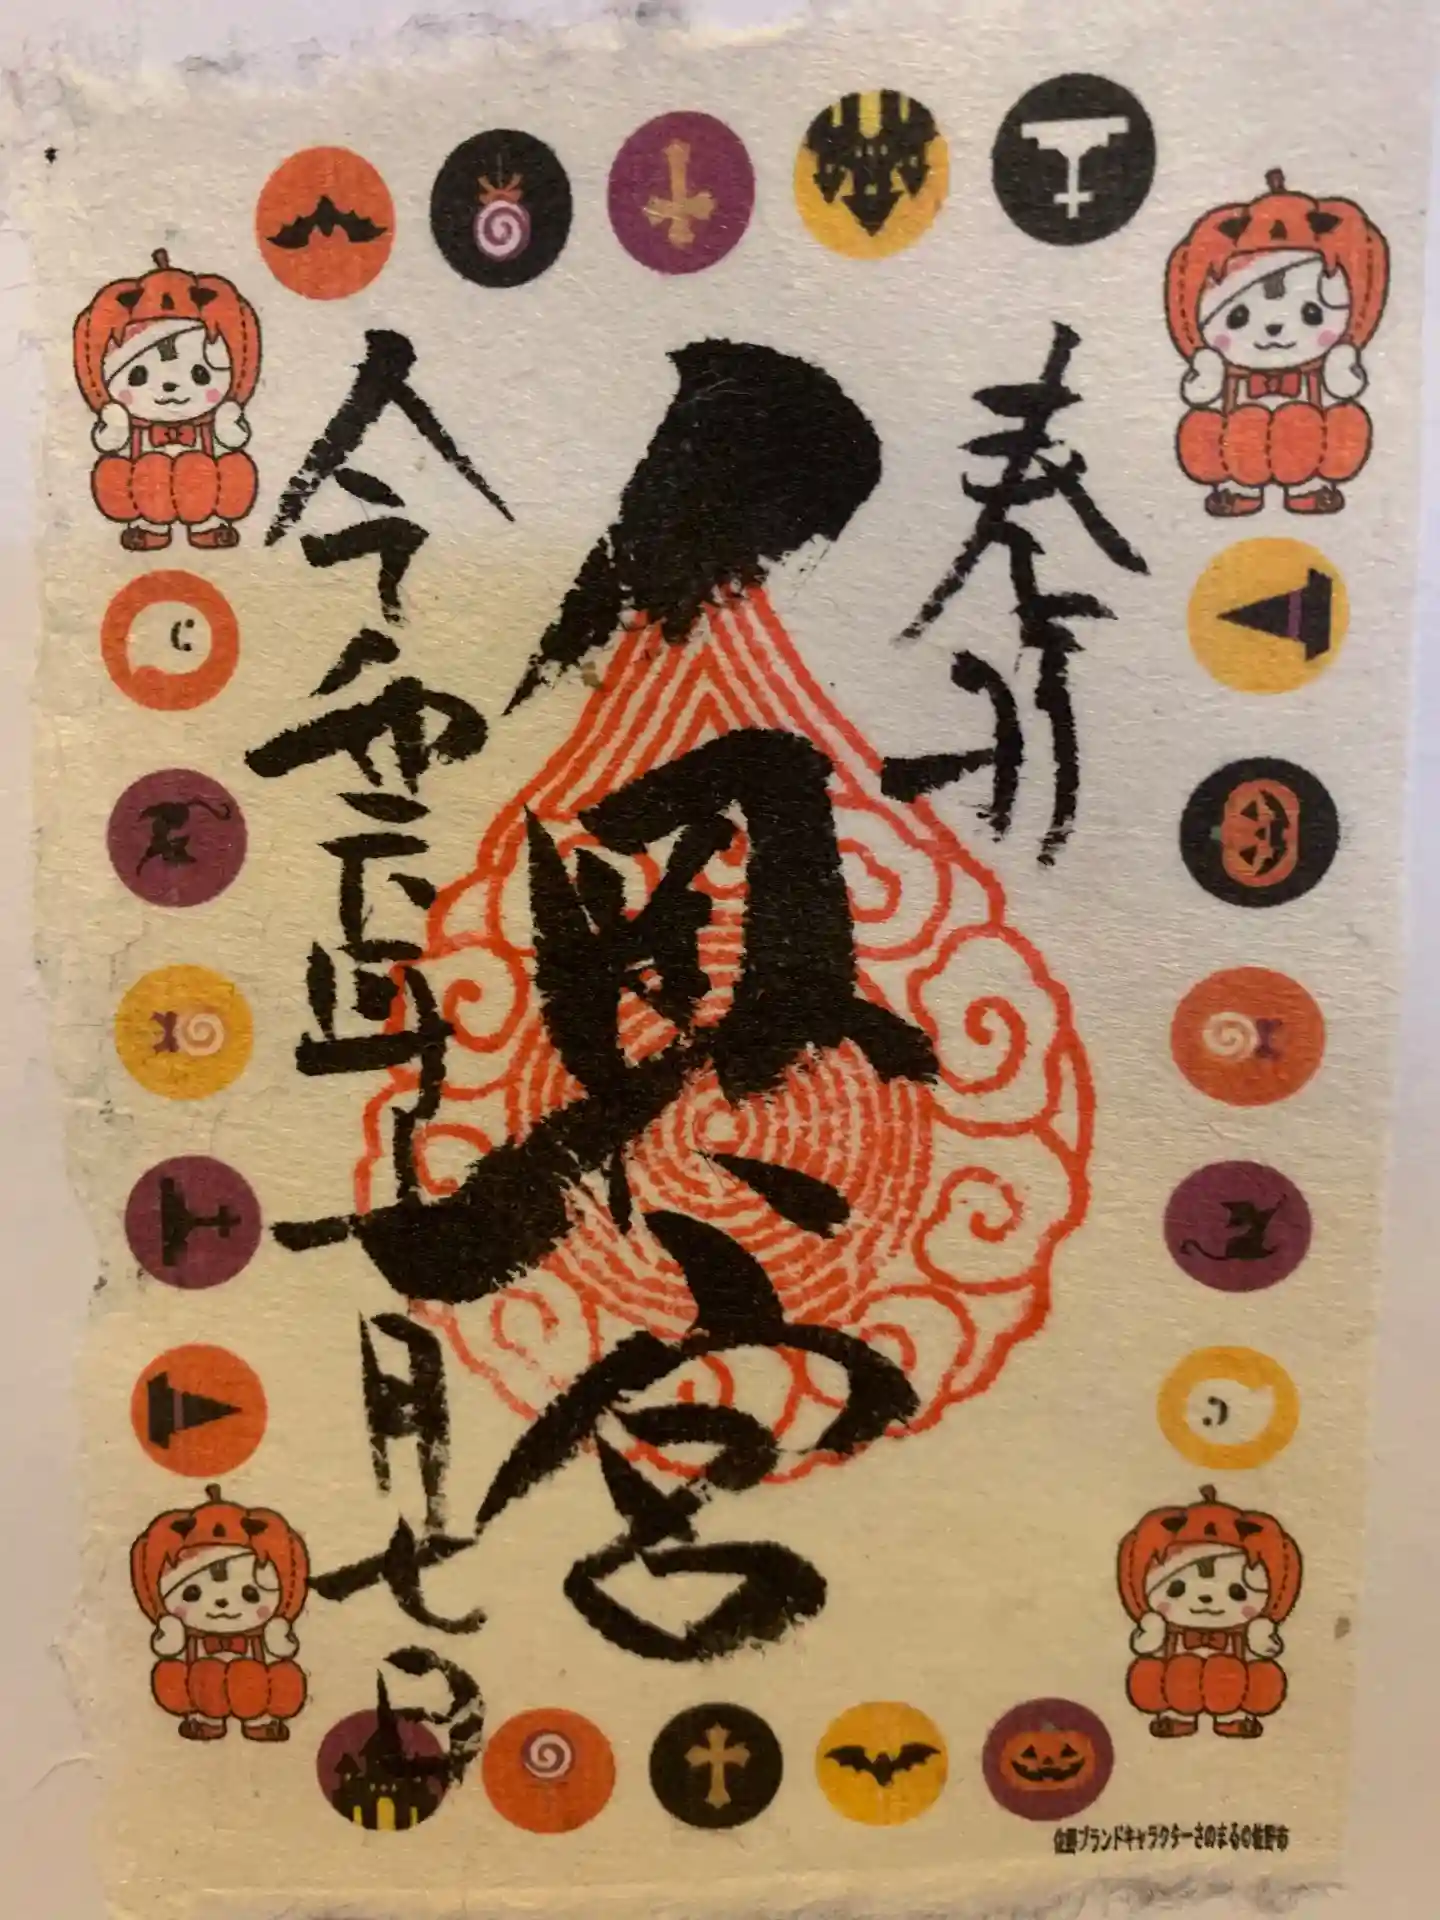 奉拝
奥宮
令和元年十月七日
佐野ブランドキャラクターさのまる©佐野市